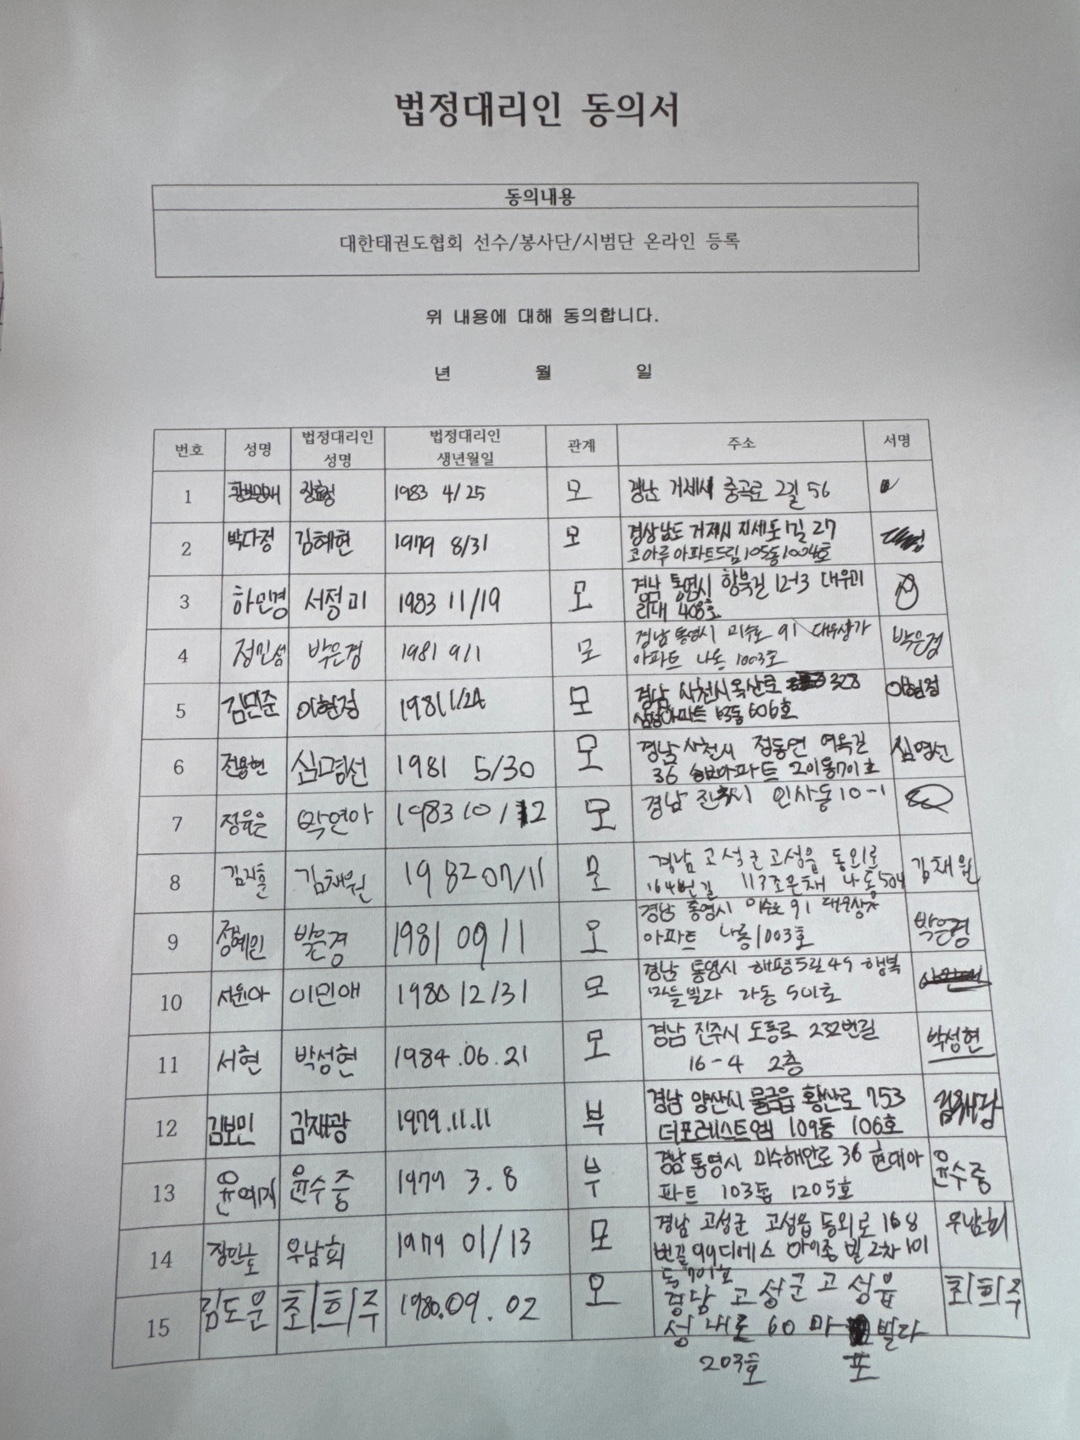 법정대리인 동의서
동의내용
대한태권도협회 선수/봉사단/시범단 온라인 등록
위 내용에 대해 동의합니다.
년 월 일
번호 성명 법정대리인 성명 법정대리인 생년월일 관계 주소 서명
1 1983 4/25 모 경남 거제시 중곡로 2길 56
2 박다정 김혜현 1979 8/31 모 경상남도 거제시 지세포1길 27
코아루 아파트 105동 1004호
3 하인경 서정미 1983 11/19 모 경남 통영시 항북길 12-3 대우미
리대 408호
4 정민성 박은경 1981 9/1 모 경남 통영시 미수로 91 대우상가 박은경
아파트 나동 1003호
5 김민준 이현정 1981 1/24 모 경남 사천시 옥산로 328 이현정
삼정아파트 606호
6 전용현 심명선 1981 5/30 모 경남 사천시 정동면 여옥길 심명선
36 아파트 201동 701호
7 정율은 박연아 1983 10/12 모 경남 진주시 인사동 10-1
8 김지훈 김채원 1982 07/11 모 경남 고성군 고성읍 동외로 김채원
164번길 117 조은채 나동 504
9 정혜인 박은경 1981 09 11 모 경남 통영시 미수로 91 대우상가 박은경
아파트 나동 1003호
10 서원아 이민애 1980 12/31 모 경남 통영시 해평5길 49 행복
마을빌라 라동 501호
11 서현 박성현 1984.06.21 모 경남 진주시 도동로 232번길 박성현
16-4 2층
12 김보민 김재광 1979.11.11 부 경남 양산시 물금읍 황산로 753 김재광
더포레스트엠 109동 106호
13 윤예지 윤수중 1979 3.8 부 경남 통영시 미수해안로 36 현대아 윤수중
파트 103동 1205호
14 장민호 우남희 1979 01/13 모 경남 고성군 고성읍 동외로 168 우남희
번길 99 디에스 아이존빌 2차 101
동 701호
15 김도운 최희주 1980.09.02 모 경남 고성군 고성읍 최희주
성내로 60 마 빌라
203호 포